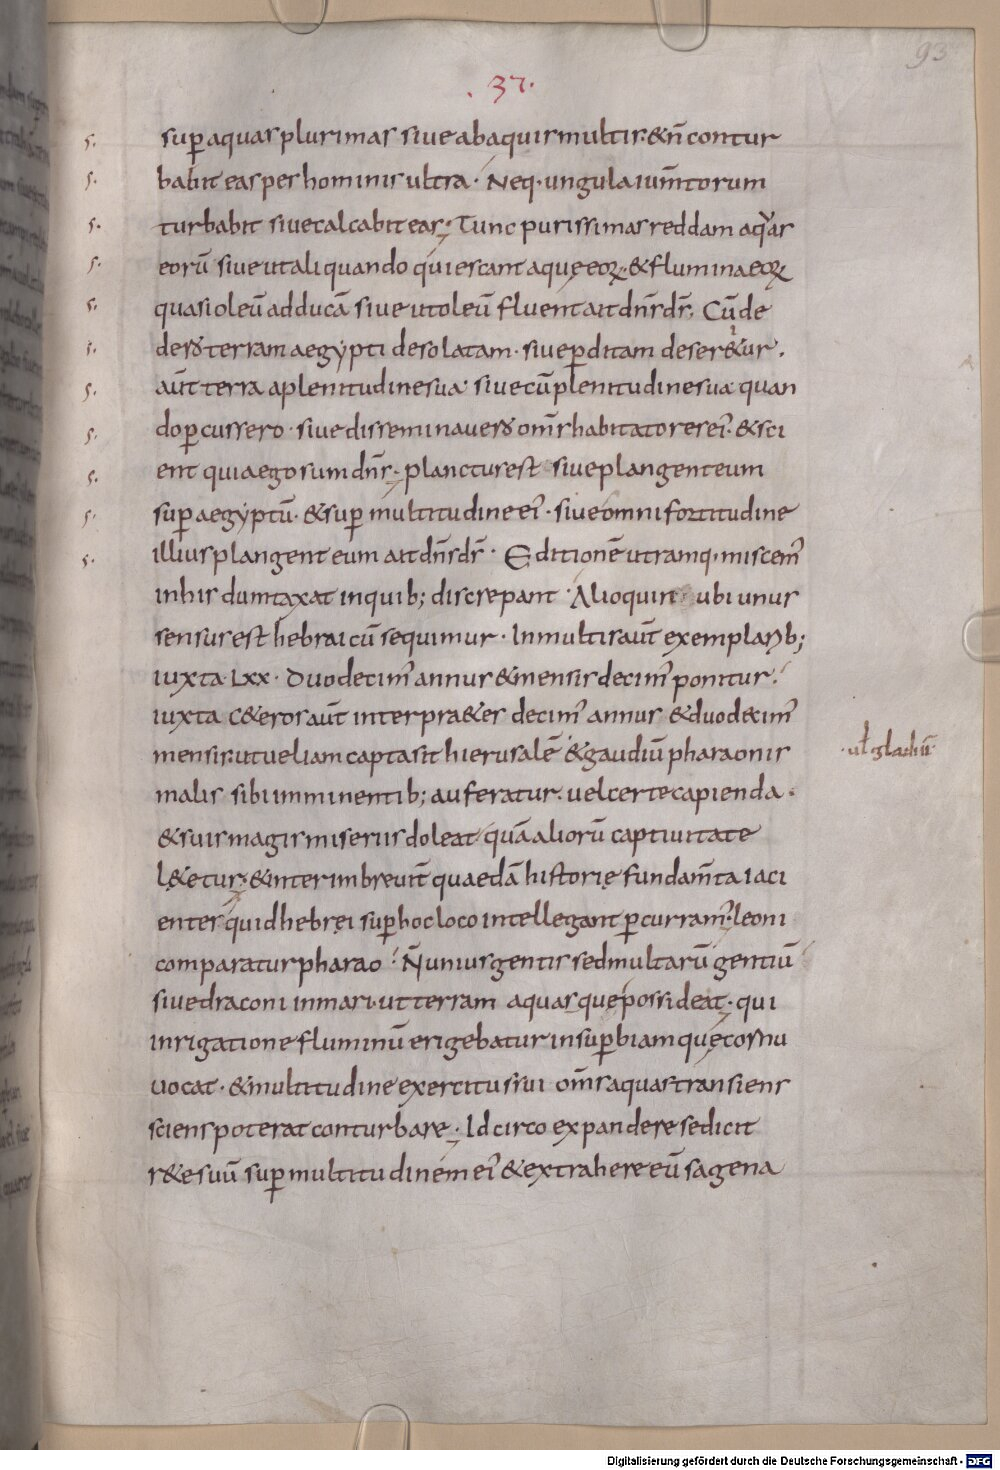 93
. 37 .
sup aquas plurimas siue ab aquis multis. &n̄ contur
babit eas pes hominis ultra. Neq. ungula ium̄torum
turbabit siue calcabit eas. Tunc purissimas reddam aquas
eorū siue ut aliquando quiescant aquę eoꝝ. & flumina eoꝝ
quasi oleū adducā siue ut oleū fluent ait dn̄s ds̄. Cū de
dero terram aegypti desolatam. siue p̱ditam deser&ur.
aūt terra a plenitudine sua. siue cū plenitudine sua. quan
do p̱cussero. siue disseminauero om̄s habitatores ei'. & sci
ent quia ego sum dn̄s. planctus est siue plangent eum
sup aegyptū. & sup multitudine ei'. siue omni fortitudine
illius plangent eum ait dn̄s ds̄. Editionē utramq. miscem'
in his dumtaxat in quib; discrepant. Alioquin ubi unus
sensus est hebraicū sequimur. In multis aūt exemplarib;
iuxta Lxx. Duodecim' annus & mensis decim' ponitur.
iuxta c&eros aūt interpra&es decim' annus & duodecim'
mensis. ut uel iam capta sit hierusalē & gaudiū pharaonis
·ul gladiū·
malis sibi imminentib; auferatur. uel certe capienda.
& suis magis miseriis doleat quā aliorū captiuitate
l&etur. & interim breuit̄ quaedā historię fundam̄ta iaci
entes quid hebręi sup hoc loco intellegant p̱curram'. leoni
comparatur pharao. N̄ unius gentis sed multarū gentiū
siue draconi in mari. ut terram aquasque possideat. qui
inrigatione fluminū erigebatur in sup̱biam quę cornu
uocat. & multitudine exercitus sui om̄s aquas transiens
sciens poterat conturbare. Idcirco expandere se dicit
r&e suū sup multitudinem ei' & extrahere eū sagena
s.
s.
s.
s.
s.
s.
s.
s.
s.
s.
s.
Digitalisierung gefördert durch die Deutsche Forschungsgemeinschaft - DFG